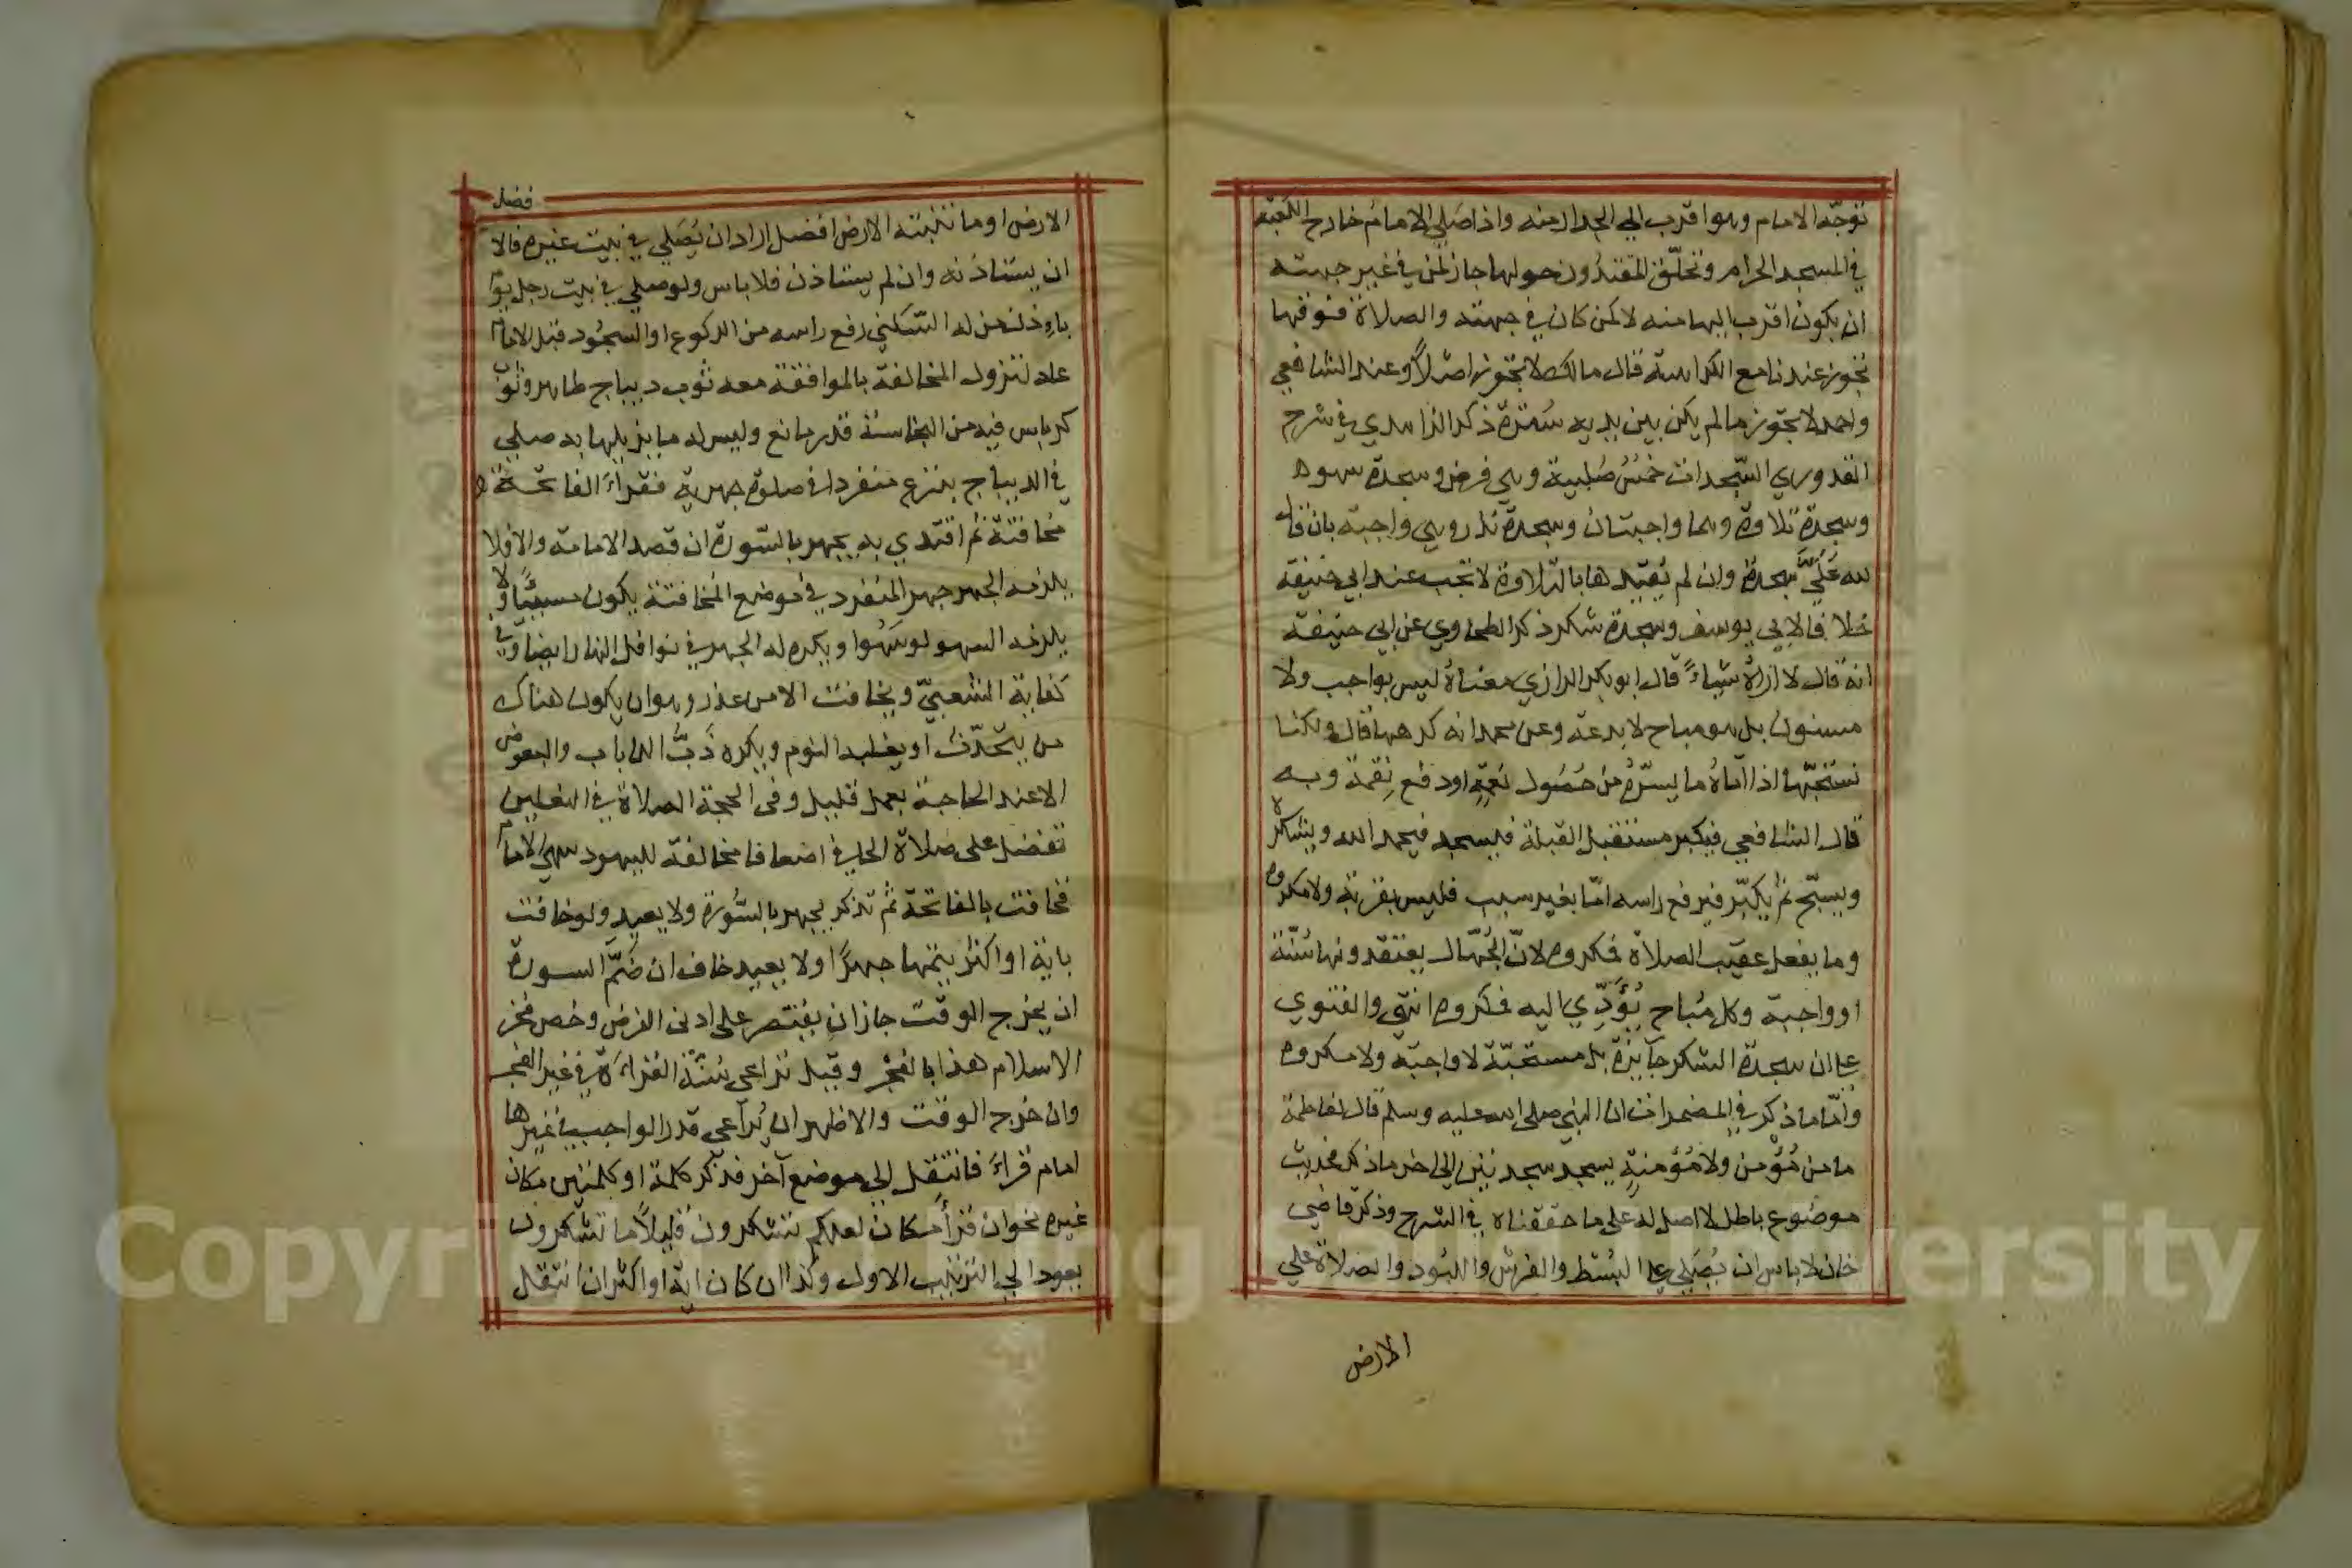 توجّه الامام وهو اقرب الي الجدار منه واذا صلي الامام خارج الكعبة
في المسجد الحرام وتحلّق المقتدون حولها جاز لمن في غير جهته
ان يكون اقرب اليها منه لا لمن كان في جهته والصلاة فوقها
تجوز عندنا مع الكراهة قال مالك لا تجوز اصلًا وعند الشافعي
واحمد لا تجوز ما لم يكن بين يديه سُترة ذكر الزاهدي في شرح
القدوري السّجدات خمسٌ صُلبية وهي فرض وسجدة سهو
وسجدة تلاوة وهما واجبتان وسجدة نذر وهي واجبة بان قال
لله عَلَيَّ سجدة وان لم يُقيّدها بالتلاوة لا تجب عند ابي حنيفة
خلافا لابي يوسف وسجدة شكر ذكر الطحاوي عن ابي حنيفة
انه قال لا اراهُ شياءً قال ابو بكر الرازي معناهُ ليس بواجب ولا
مسنون بل هو مباح لا بدعة وعن محمد انه كرهها قال ولكنا
نستحبّها اذا اتاهُ ما يسرّهُ من حُصُول نعمةٍ او دفع نِقمة وبه
قال الشافعي فيكبر مستقبل القبلة فيسجد فيحمد الله ويشكره
ويسبّح ثم يكبّر فيرفع راسه امّا بغير سبب فليس بقربة ولا مكروه
وما يفعل عقيب الصلاة فمكروه لانّ الجُهّال يعتقدونها سُنّة
او واجبة وكل مُباح يُؤَدِّي اليه فمكروه انتهي والفتوي
علي ان سجدة الشكر جايزة بل مستحبّة لا واجبة ولا مكروه
وامّا ما ذكر في المضمرات ان النبي صلي الله عليه وسلم قال لفاطمة
ما من مُؤْمن ولا مُؤمنةٍ يسجد سجدتين الي اخر ما ذكر فحديث
موضوع باطل لا اصل له علي ما حققناه في الشرح وذكر قاضي
خان لا باس ان يُصَلي علي البُسُط والفرش واللبُود والصلاة علي
الارض
فصل
الارض او ما تنبته الارض افضل اراد ان يُصَلي في بيت غيره فالا
ان يستاذنه وان لم يستاذن فلا باس ولو صلي في بيت رجل يوم
باذن من له السّكني رفع راسه من الركوع او السجُود قبل الامام
عاد لتزول المخالفة بالموافقة معه ثوب ديباج طاهر وثوب
كرباس فيه من النجاسة قدر مانع وليس له ما يزيلها به صلي
في الديباج بنزع منفردا في صلوة جهرية فقراءَ الفاتحة
مخافتة ثم اقتدي به يجهر بالسّورة ان قصد الامامة والا فلا
يلزمه الجهر جهر المنفرد في موضع المخافتة يكون مسيئًا ولا
يلزمه السهو لو سَهُوا ويكره له الجهر في نوافل النهار ايضا وفي
كفاية الشعبيّ ويخافت الا من عذر وهو ان يكون هناك
من يتحدّث او يغلبه النوم ويكره ذَبُّ الذباب والبعوض
الا عند الحاجة بعمل قليل وفي الحجة الصلاة في النعلين
تفضل علي صلاة الحافي اضعافا مخالفة لليهود سهي الامام
فخافت بالفاتحة ثم تذكر يجهر بالسُّورة ولا يعيد ولو خافت
باية او اكثر يتمها جهرًا ولا يعيد خاف ان ضَمَّ السورة
ان يخرج الوقت جاز ان يقتصر علي ادني الفرض وخص فخر
الاسلام هذا بالفجر وقيل تراعي سُنّة القراءة في غير الفجر
وان خرج الوقت والاظهر ان يُراعي قدر الواجب في غيرها
امام قراءَ فانتقل الي موضع آخر فذكر كلمة او كلمتين مكان
غيره نحو ان قرأ مكان لعلكم تشكرون قليلًا ما تشكرون
يعود الي الترتيب الاول وكذا ان كان اية او اكثر ان انتقل